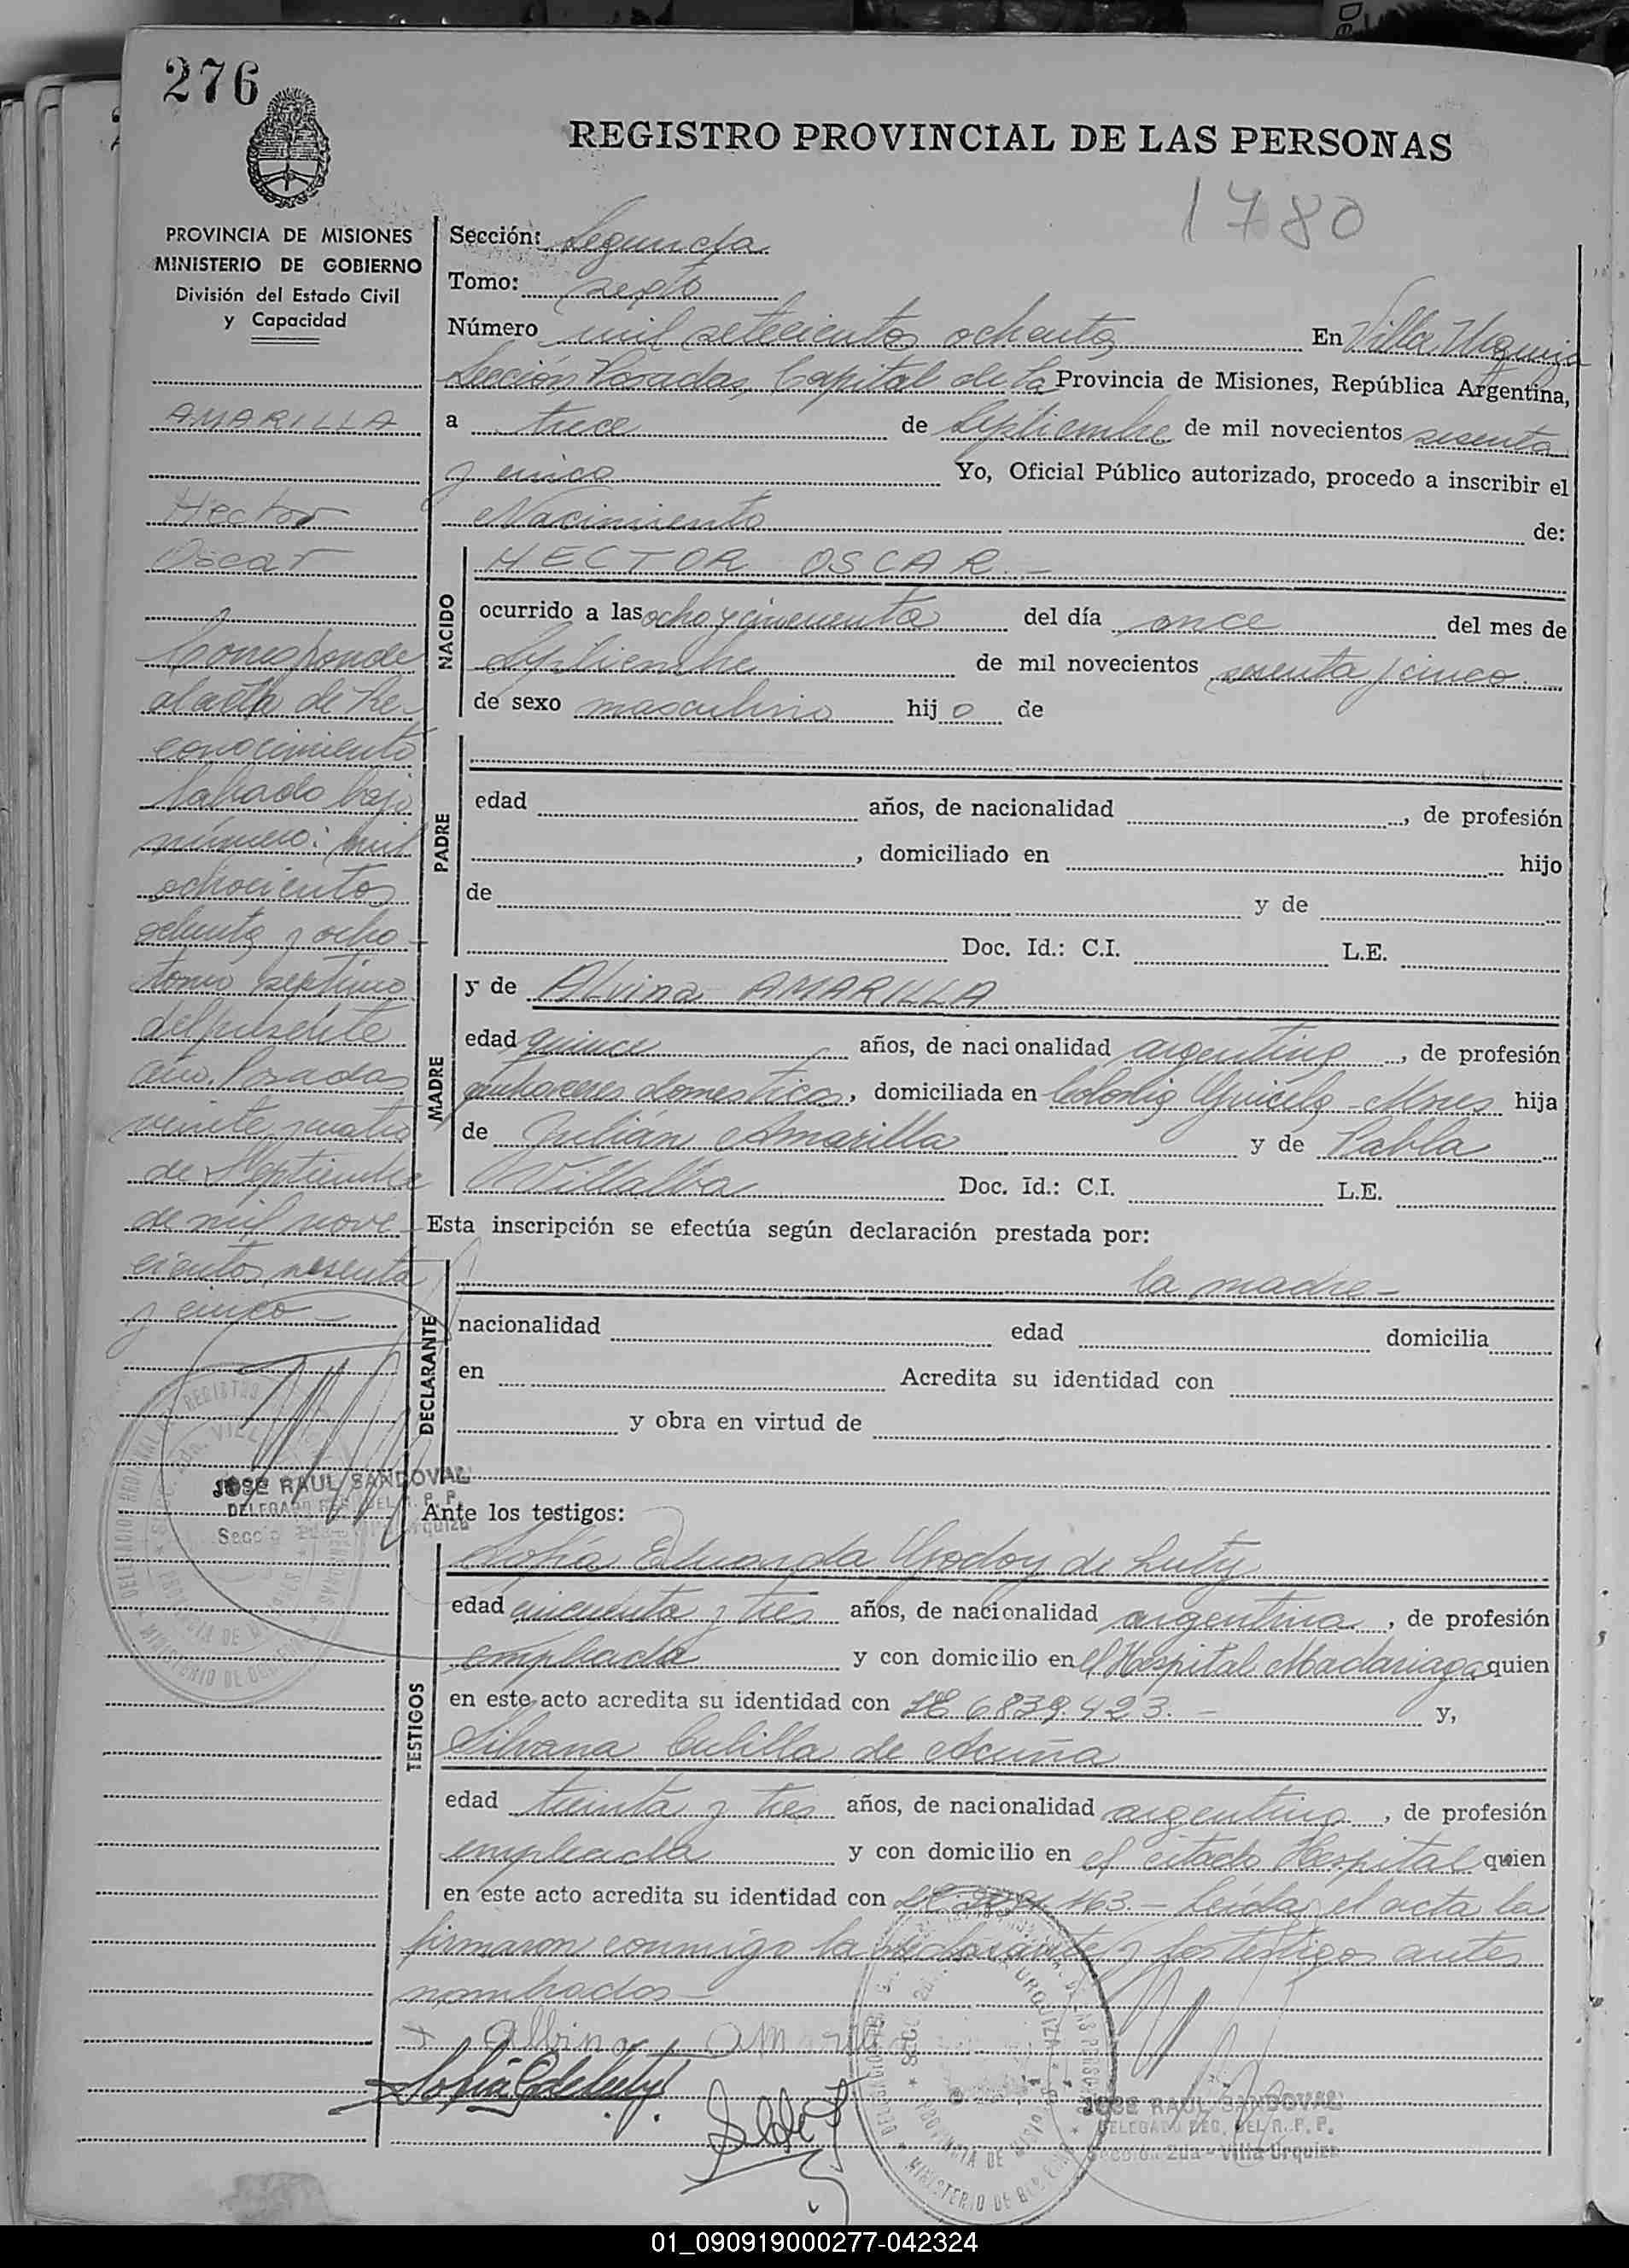 276
REGISTRO PROVINCIAL DE LAS PERSONAS
1780
PROVINCIA DE MISIONES
MINISTERIO DE GOBIERNO
División del Estado Civil
y Capacidad
AMARILLA
Hector
Oscar
Corresponde
al acta de Re-
conocimiento
labrado bajo
número: mil
ochocientos
ochenta y ocho -
tomo septimo
del presente
año. Posadas
veinte y cuatro
de Septiembre
de mil nove
cientos sesenta
y cinco -
JOSE RAUL SANDOVAL
DELEGADO REG. DEL R. P. P.
Sección: Segunda
Tomo: sexto
Número mil setecientos ochenta En Villa Urquiza
Sección Posadas, Capital de la Provincia de Misiones, República Argentina,
a trece de Septiembre de mil novecientos sesenta
y cinco Yo, Oficial Público autorizado, procedo a inscribir el
Nacimiento de:
NACIDO
HECTOR OSCAR. -
ocurrido a las ocho y cincuenta del día once del mes de
Septiembre de mil novecientos sesenta y cinco.
de sexo masculino hijo de
PADRE
edad años, de nacionalidad , de profesión
, domiciliado en hijo
de y de
Doc. Id.: C.I. L.E.
MADRE
y de Alvina AMARILLA
edad quince años, de nacionalidad argentina, de profesión
quehaceres domesticos, domiciliada en Colonia hija
de Julián Amarilla y de Pabla
Villalba Doc. Id.: C.I. L.E.
Esta inscripción se efectúa según declaración prestada por:
DECLARANTE
la madre -
nacionalidad edad domicilia
en Acredita su identidad con
y obra en virtud de
Ante los testigos:
TESTIGOS
Sofía Eduarda Godoy de Luty
edad cincuenta y tres años, de nacionalidad argentina, de profesión
empleada y con domicilio en el Hospital Madariaga quien
en este acto acredita su identidad con LC 6839.423. - y,
Silvana Cutilla de Acuña
edad treinta y tres años, de nacionalidad argentina, de profesión
empleada y con domicilio en el citado Hospital quien
en este acto acredita su identidad con 163. - Leída el acta la
firmaron conmigo la declarante y los testigos antes
nombrados -
albina amarilla
JOSE RAUL SANDOVAL
DELEGADO REG. DEL R. P. P.
Sección 2da - Villa Urquiza
01_090919000277-042324